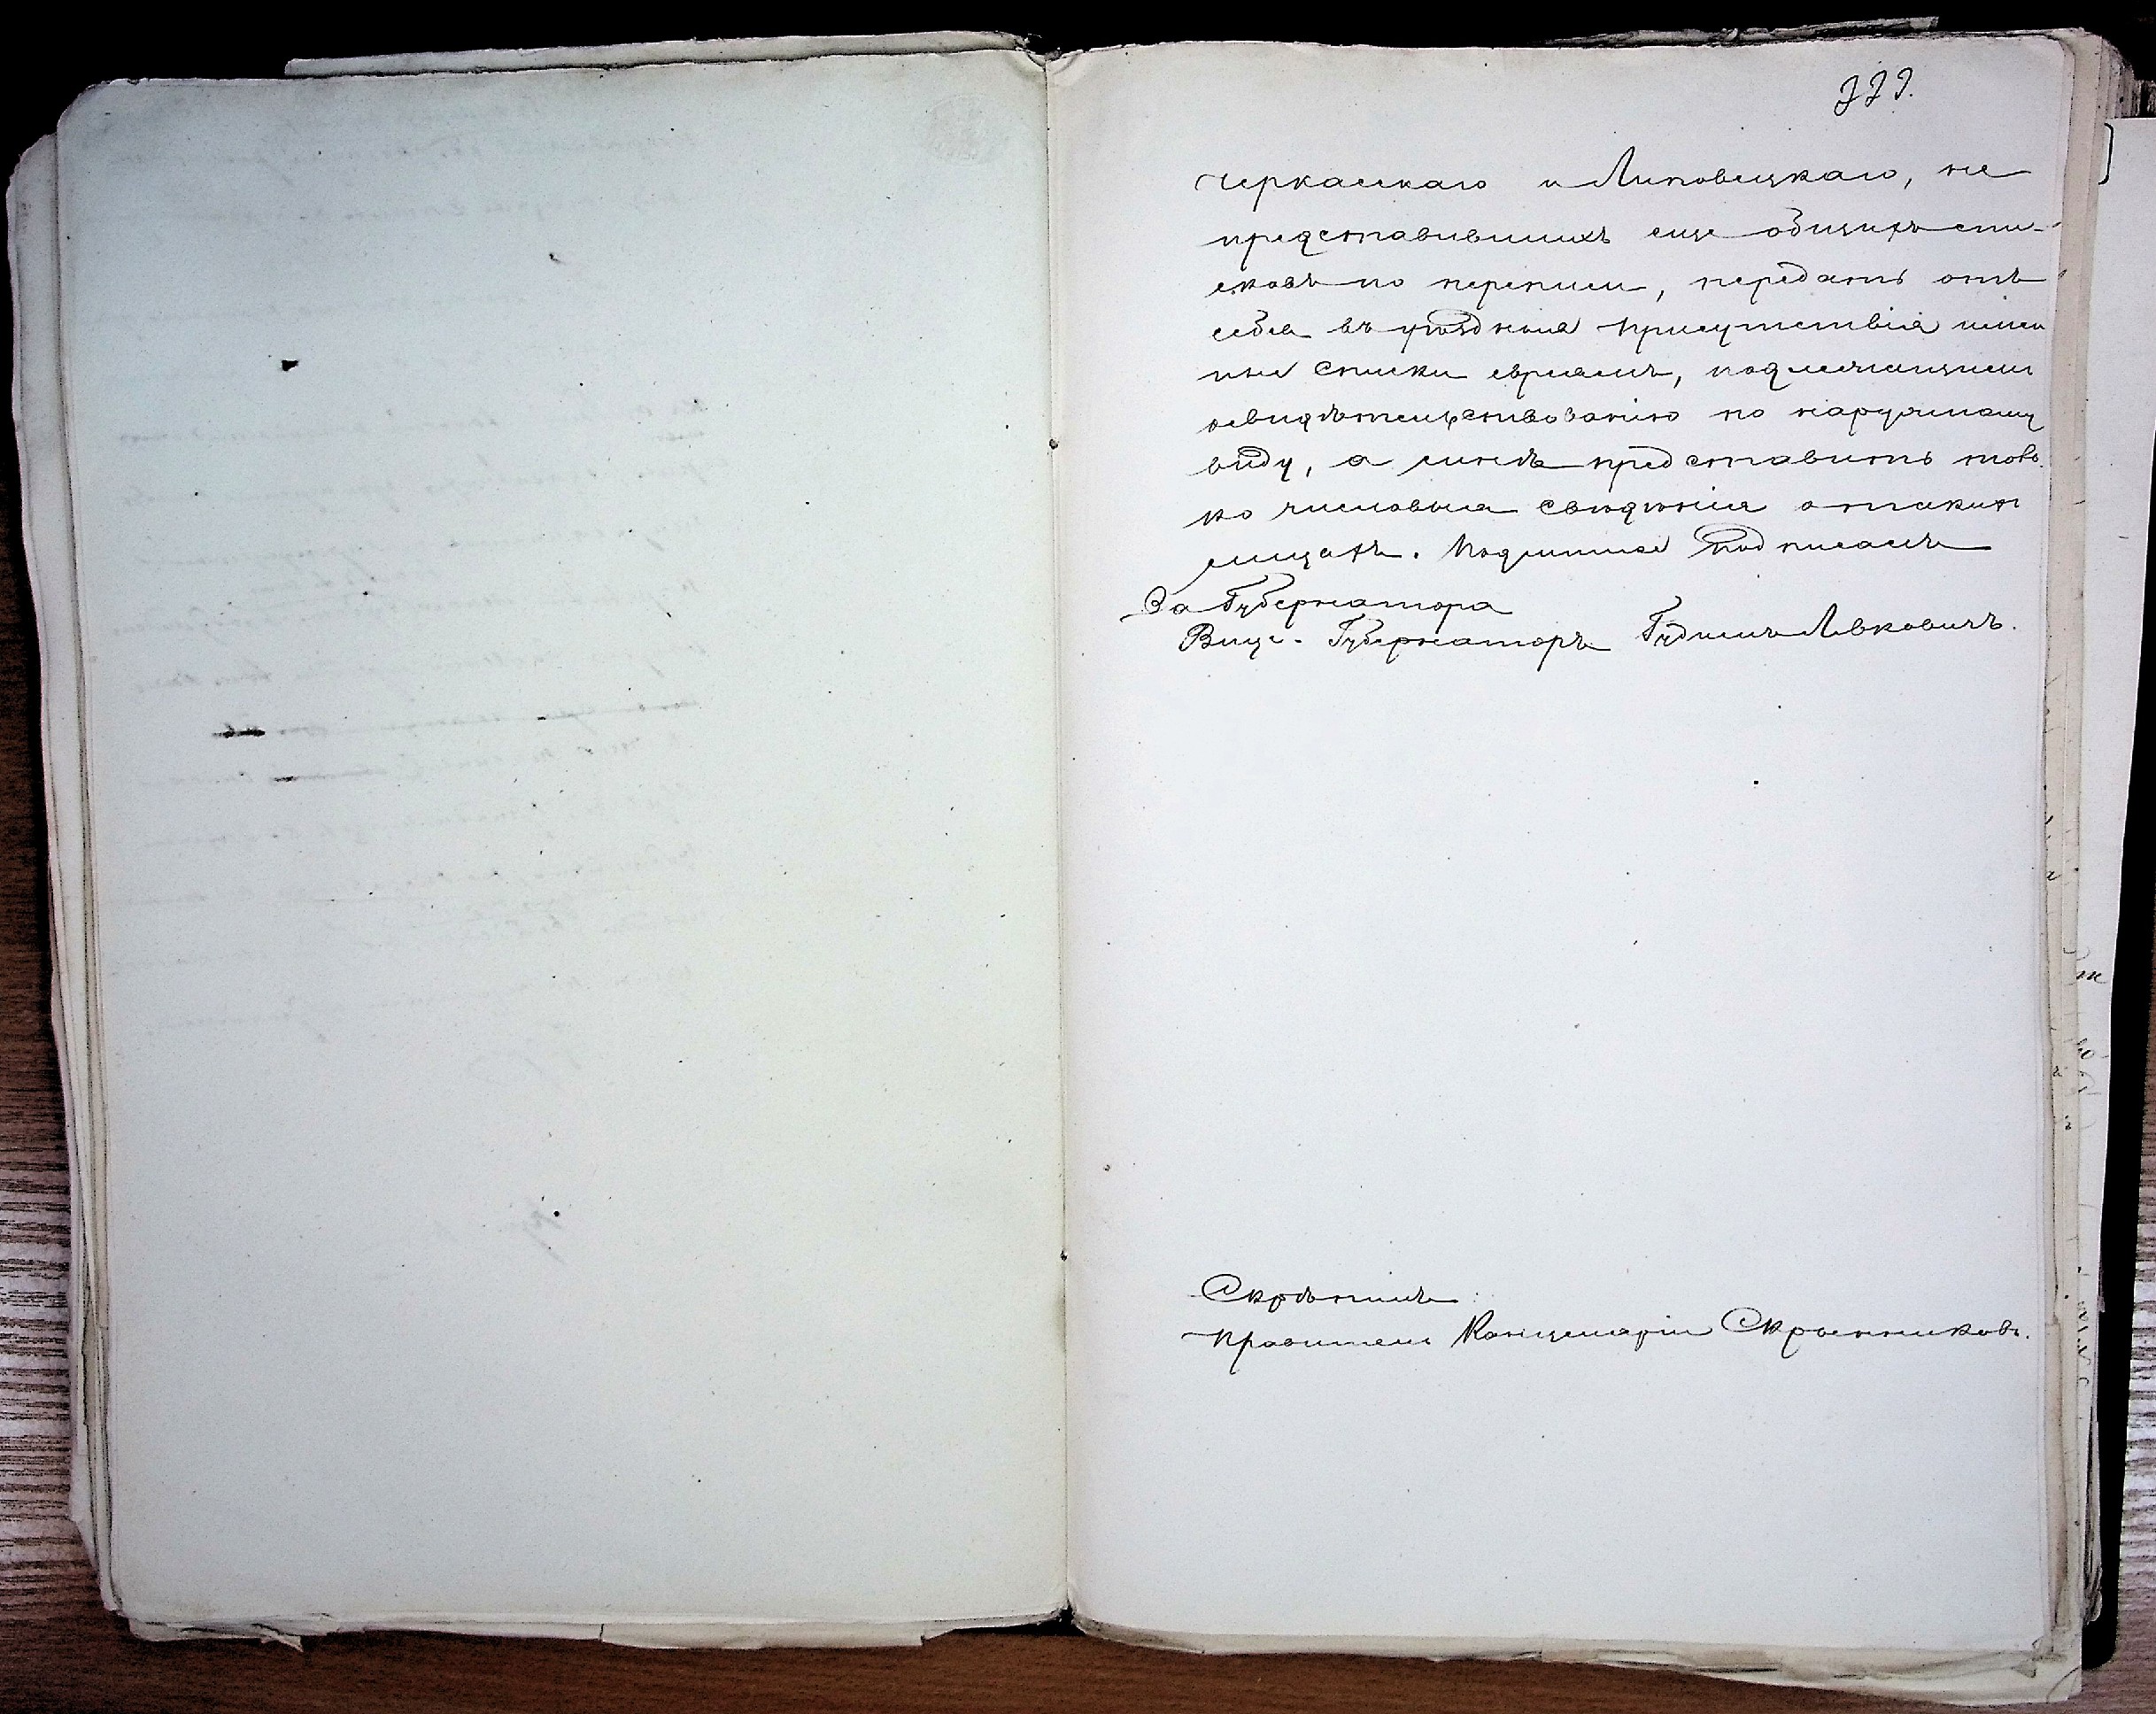 339.
Черкаскаго и Липовецкаго, не
представившихъ еще общихъ спи-
сковъ по переписи, передать отъ
себя въ уѣздныя Присутствія имен
ные списки евреямъ, подлежащимъ
освидѣтельствованію по наружному
виду, а мнѣ представить толь
ко числовыя свѣдѣнія о такихъ
лицахъ. Подлинное подписалъ
За Губернатора
Вице-Губернаторъ Гудимъ Левковичъ.
Скрѣпилъ:
Правитель Канцеляріи Скрынниковъ.